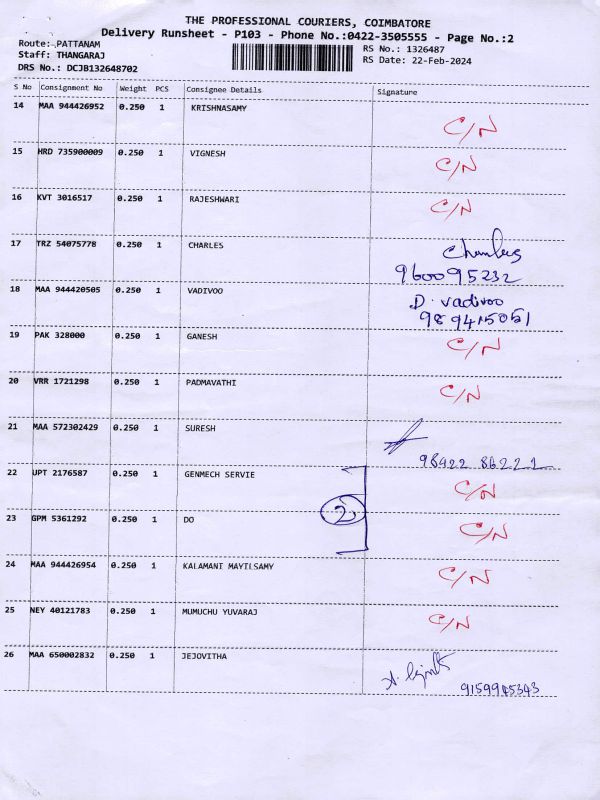 THE PROFESSIONAL COURIERS, COIMBATORE
Delivery Runsheet - P103 - Phone No.:0422-3505555 - Page No.:2
Route: PATTANAM
RS No.: 1326487
Staff: THANGARAJ
RS Date: 22-Feb-2024
DRS No.: DCJB132648702
S No Consignment No Weight PCS Consignee Details Signature
14 MAA 944426952 0.250 1 KRISHNASAMY C/N
15 HRD 735900009 0.250 1 VIGNESH C/N
16 KVT 3016517 0.250 1 RAJESHWARI C/N
17 TRZ 54075778 0.250 1 CHARLES
960095232
18 MAA 944420505 0.250 1 VADIVOO D. vadivoo
9894115051
19 PAK 328000 0.250 1 GANESH C/N
20 VRR 1721298 0.250 1 PADMAVATHI C/N
21 MAA 572302429 0.250 1 SURESH
98422 86221
22 UPT 2176587 0.250 1 GENMECH SERVIE C/N
2
23 GPM 5361292 0.250 1 DO C/N
24 MAA 944426954 0.250 1 KALAMANI MAYILSAMY C/N
25 NEY 40121783 0.250 1 MUMUCHU YUVARAJ C/N
26 MAA 650002832 0.250 1 JEJOVITHA
9159945343